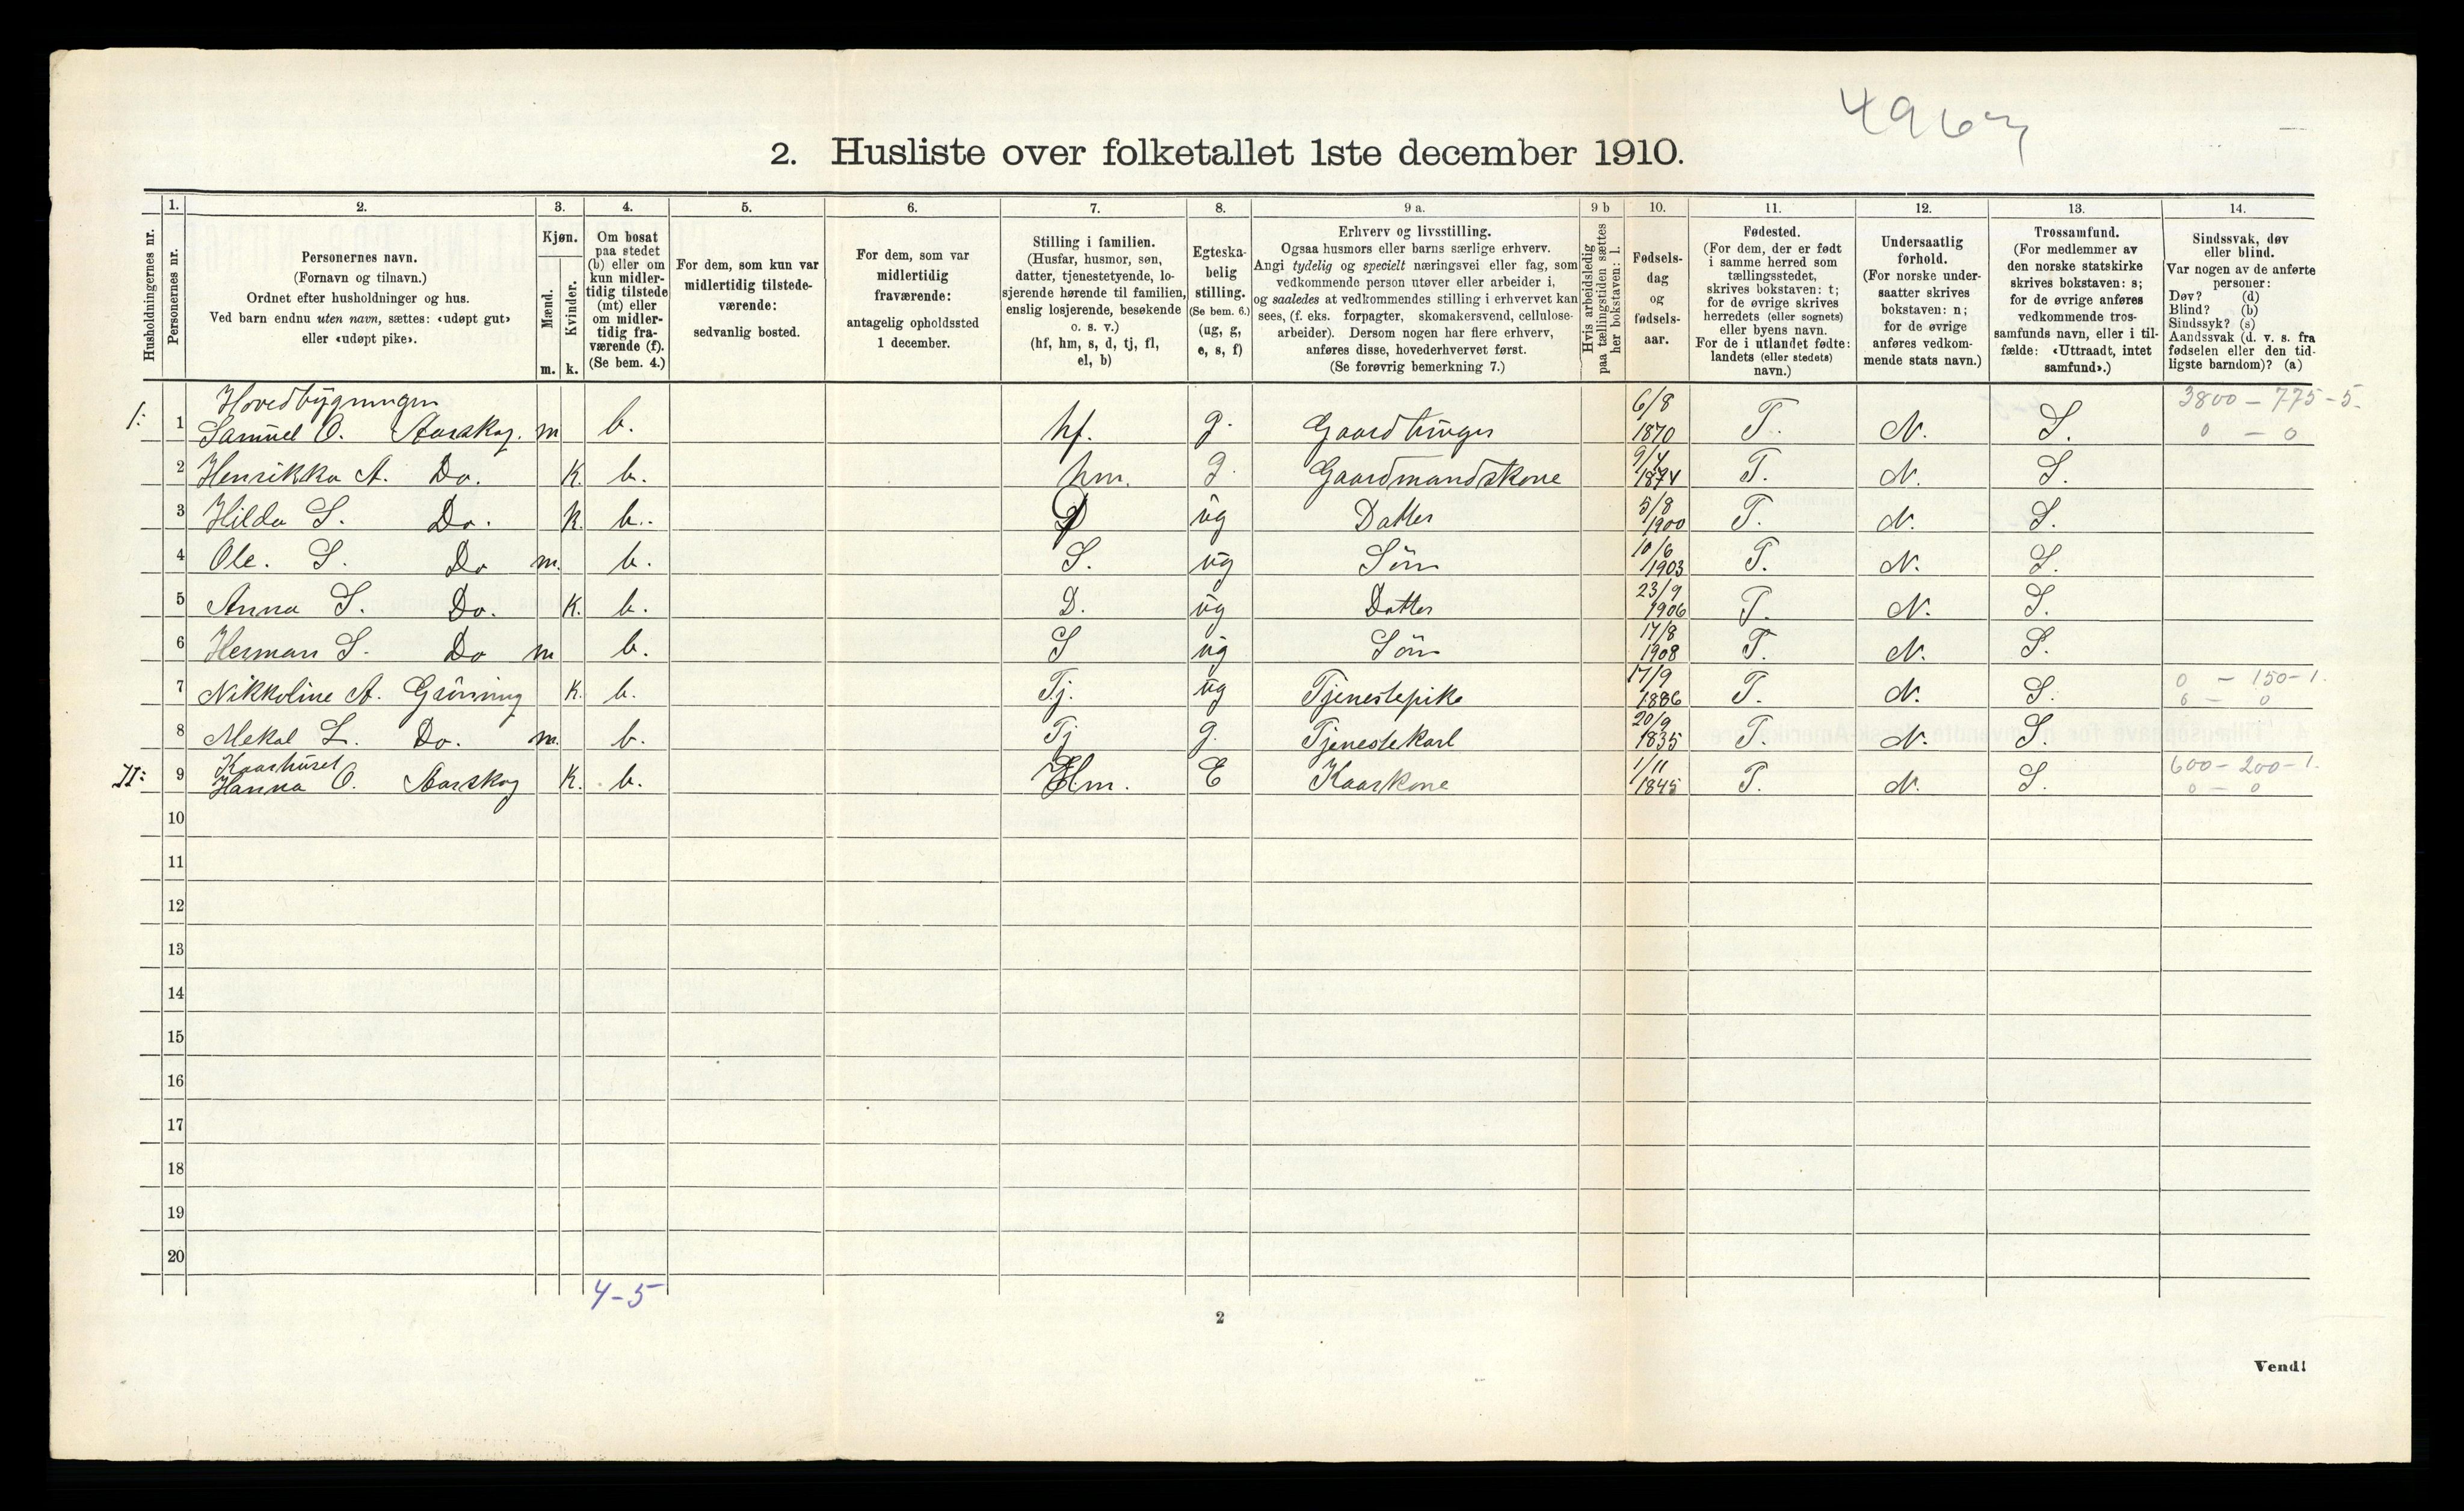 4963
2. Husliste over folketallet 1ste december 1910.
Husholdningernes nr.
1. Personernes nr.
2. Personernes navn.
(Fornavn og tilnavn.)
Ordnet efter husholdninger og hus.
Ved barn endnu uten navn, sættes: «udøpt gut»
eller «udøpt pike».
3. Kjøn.
Mænd. Kvinder.
m. k.
4. Om bosat
paa stedet
(b) eller om
kun midler-
tidig tilstede
(mt) eller
om midler-
tidig fra-
værende (f).
(Se bem. 4.)
5. For dem, som kun var
midlertidig tilstede-
værende:
sedvanlig bosted.
6. For dem, som var
midlertidig
fraværende:
antagelig opholdssted
1 december.
7. Stilling i familien.
(Husfar, husmor, søn,
datter, tjenestetyende, lo-
sjerende hørende til familien,
enslig losjerende, besøkende
o. s. v.)
(hf, hm, s, d, tj, fl,
el, b)
8. Egteska-
belig
stilling.
(Se bem. 6.)
(ug, g,
e, s, f)
9 a. Erhverv og livsstilling.
Ogsaa husmors eller barns særlige erhverv.
Angi tydelig og specielt næringsvei eller fag, som
vedkommende person utøver eller arbeider i,
og saaledes at vedkommendes stilling i erhvervet kan
sees, (f. eks. forpagter, skomakersvend, cellulose-
arbeider). Dersom nogen har flere erhverv,
anføres disse, hovederhvervet først.
(Se forøvrig bemerkning 7.)
9 b Hvis arbeidsledig
paa tællingstiden sættes
her bokstaven: l.
10. Fødsels-
dag
og
fødsels-
aar.
11. Fødested.
(For dem, der er født
i samme herred som
tællingsstedet,
skrives bokstaven: t;
for de øvrige skrives
herredets (eller sognets)
eller byens navn.
For de i utlandet fødte:
landets (eller stedets)
navn.)
12. Undersaatlig
forhold.
(For norske under-
saatter skrives
bokstaven: n;
for de øvrige
anføres vedkom-
mende stats navn.)
13. Trossamfund.
(For medlemmer av
den norske statskirke
skrives bokstaven: s;
for de øvrige anføres
vedkommende tros-
samfunds navn, eller i til-
fælde: «Uttraadt, intet
samfund».)
14. Sindssvak, døv
eller blind.
Var nogen av de anførte
personer:
Døv? (d)
Blind? (b)
Sindssyk? (s)
Aandssvak (d. v. s. fra
fødselen eller den tid-
ligste barndom)? (a)
Hovedbygningen 6/8 3800 - 775-5.
1: 1 Samuel O. Aarskog. m b. hf. g. Gaardbruger 1870 T. N. S. 0 - 0
2 Henrikka A. Do. K. b. hm. g. Gaardmandskone 9/4 1874 T. N. S.
3 Hilda S. Do. K. b. D ug Datter 5/8 1900 T. N. S.
4 Ole. S. Do m. b. S. ug Søn 10/6 1903 T. N. S.
5 Anna S. Do. K. b. D. ug Datter 23/9 1906 T. N. S.
6 Herman S. Do m b. S ug Søn 17/8 1908 T. N. S.
7 Nikkoline A. Grönning K. b. Tj. ug Tjenestepike 17/9 1886 T. N. S. 0 - 150-1.
0 - 0
8 Mekal L. Do. m. b. Tj g. Tjenestekarl 20/9 1835 T. N. S.
Kaarhuset 600 - 200-1.
II: 9 Hanna O. Aarskog K. b. Hm. E Kaarkone 1/11 1845 T. N. S. 0 - 0
10
11
12
13
14
15
16
17
18
19
20
4-5
2
Vend!